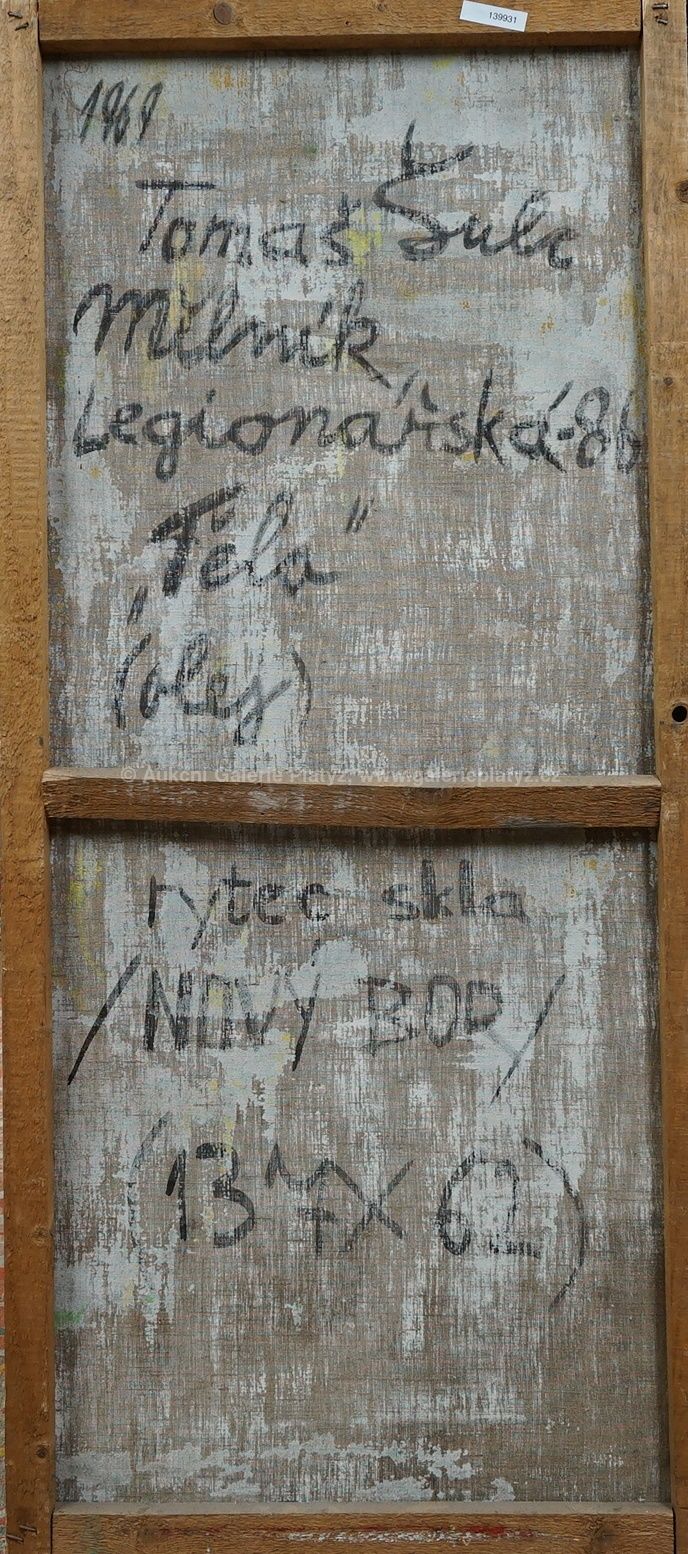 139931
1969
Tomaš Šulc
Mělník,
Legionářská-86
„Těla"
(olej)
© Aukční Galerie Platýz, www.galerieplatyz.cz
rytec skla
/NOVÝ BOR/
(137X62)